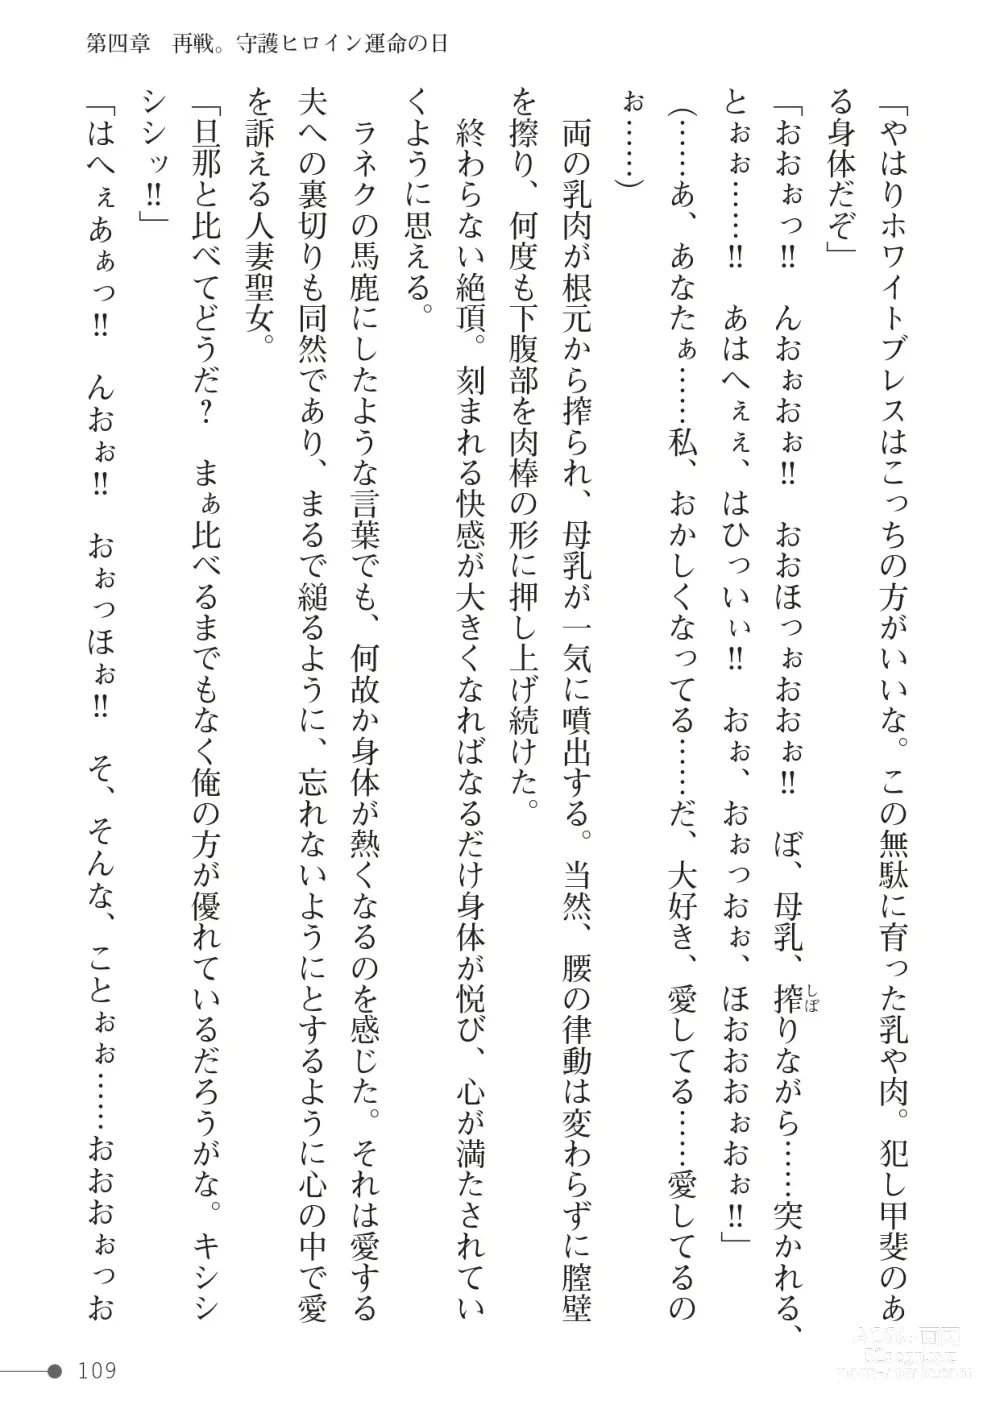 第四章　再戦。守護ヒロイン運命の日
「やはりホワイトブレスはこっちの方がいいな。この無駄に育った乳や肉。犯し甲斐のあ
る身体だぞ」
「おおぉっ!!　んおぉおぉ!!　おおほっぉおおぉ!!　ぼ、母乳、搾りながら……突かれる、
しぼ
とぉぉ……!!　あはへぇぇ、はひっいぃ!!　おぉ、おぉっおぉ、ほおおおぉおぉ!!」
（……あ、あなたぁ……私、おかしくなってる……だ、大好き、愛してる……愛してるの
ぉ……）
　両の乳肉が根元から搾られ、母乳が一気に噴出する。当然、腰の律動は変わらずに膣壁
を擦り、何度も下腹部を肉棒の形に押し上げ続けた。
　終わらない絶頂。刻まれる快感が大きくなればなるだけ身体が悦び、心が満たされてい
くように思える。
　ラネクの馬鹿にしたような言葉でも、何故か身体が熱くなるのを感じた。それは愛する
夫への裏切りも同然であり、まるで縋るように、忘れないようにとするように心の中で愛
を訴える人妻聖女。
「旦那と比べてどうだ？　まぁ比べるまでもなく俺の方が優れているだろうがな。キシシ
シシッ!!」
「はへぇあぁっ!!　んおぉ!!　おぉっほぉ!!　そ、そんな、ことぉぉ……おおおぉっお
109